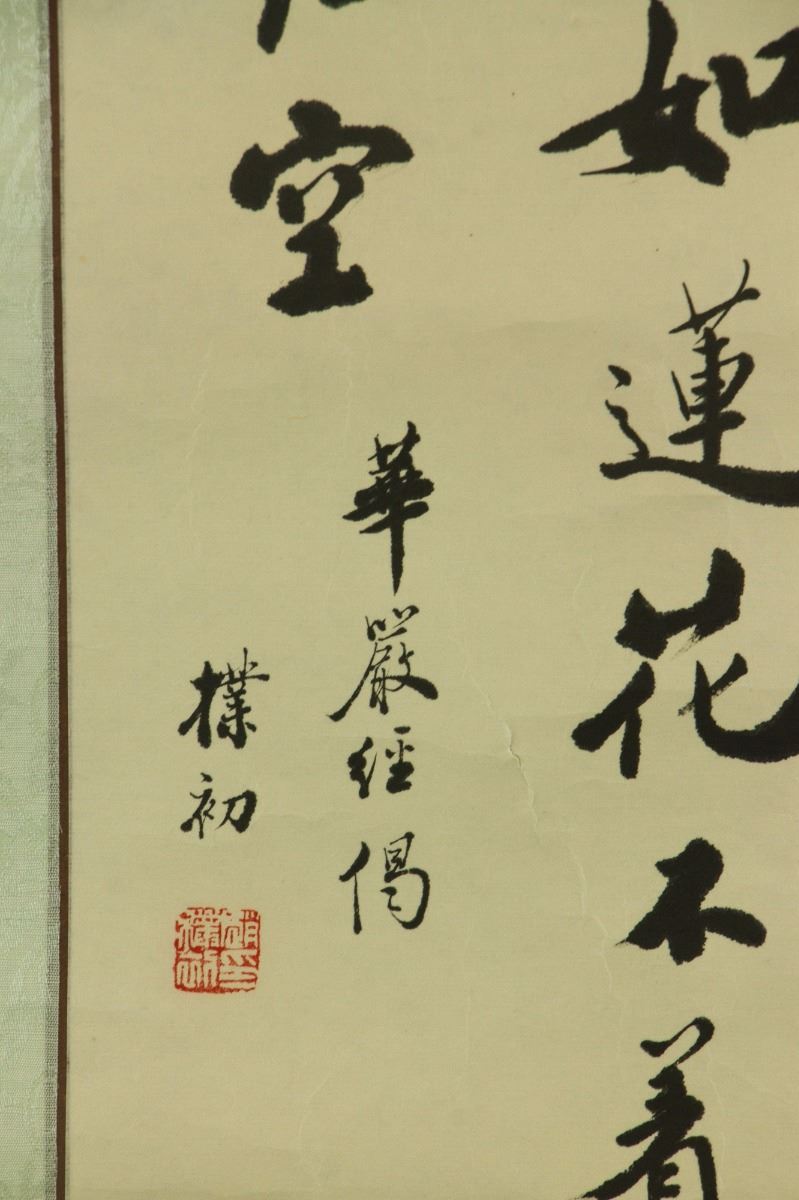 如蓮花不着
空
華嚴經偈
樸初
趙樸初印